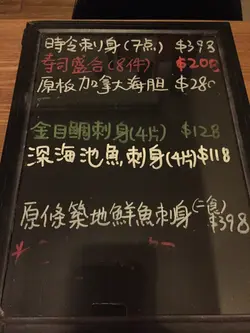 時令刺身(7点) $398
寿司盛合(8件) $200
原板加拿大海胆 $280
金目鯛刺身(4片) $128
深海池魚刺身(4片) $118
原條築地鮮魚刺身(二食) $398